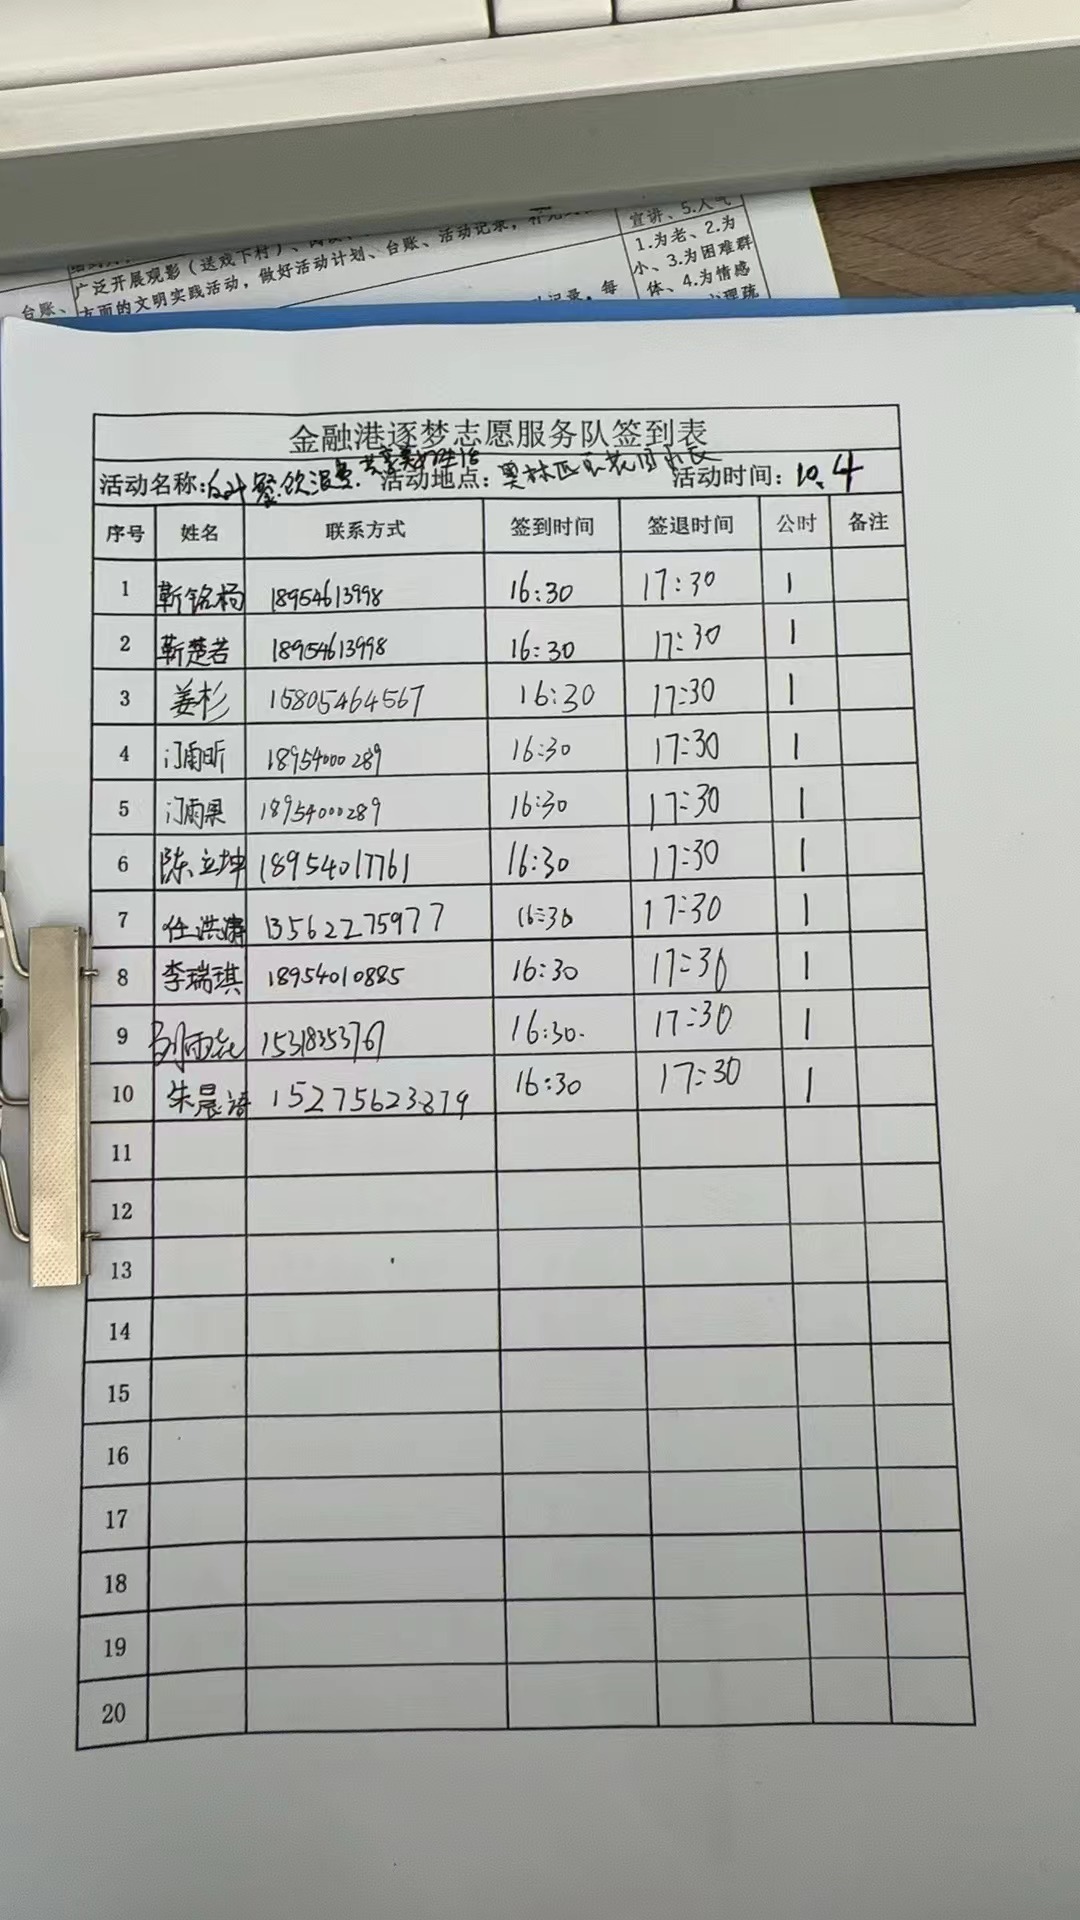 宣讲、5.人气
广泛开展观影（送戏下村）、
1.为老、2.为
台账、方面的文明实践活动，做好活动计划、台账、活动记录，
小、3.为困难群
记录，每
体、4.为情感
心理疏
金融港逐梦志愿服务队签到表
活动名称：餐饮浪费.共享美好生活 活动地点：奥林匹克花园 活动时间：10.4
序号 姓名 联系方式 签到时间 签退时间 公时 备注
1 靳铭杨 18954613998 16:30 17:30 1
2 靳楚若 18954613998 16:30 17:30 1
3 姜杉 15805464567 16:30 17:30 1
4 门雨昕 18954000289 16:30 17:30 1
5 门雨果 18954000289 16:30 17:30 1
6 陈立坤 18954017761 16:30 17:30 1
7 任洪涛 13562275977 16:30 17:30 1
8 李瑞琪 18954010885 16:30 17:30 1
9 刘雨 1531835376 16:30. 17:30 1
10 朱晨语 15275623879 16:30 17:30 1
11
12
13
14
15
16
17
18
19
20